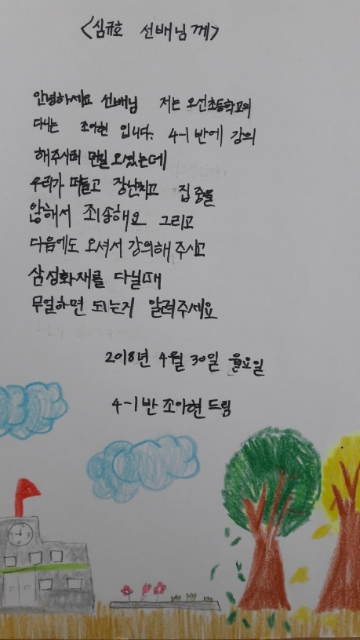 <심규호 선배님께>
안녕하세요 선배님 저는 오선초등학교에
다니는 조아현 입니다. 4-1 반에 강의
해주시러 오셨는데
우리가 떠들고 장난치고 집중을
않해서 죄송해요 그리고
다음에도 오셔서 강의해 주시고
삼성화재를 다닐때
무얼하면 되는지 알려주세요
2018년 4월 30일 월요일
4-1반 조아현 드림